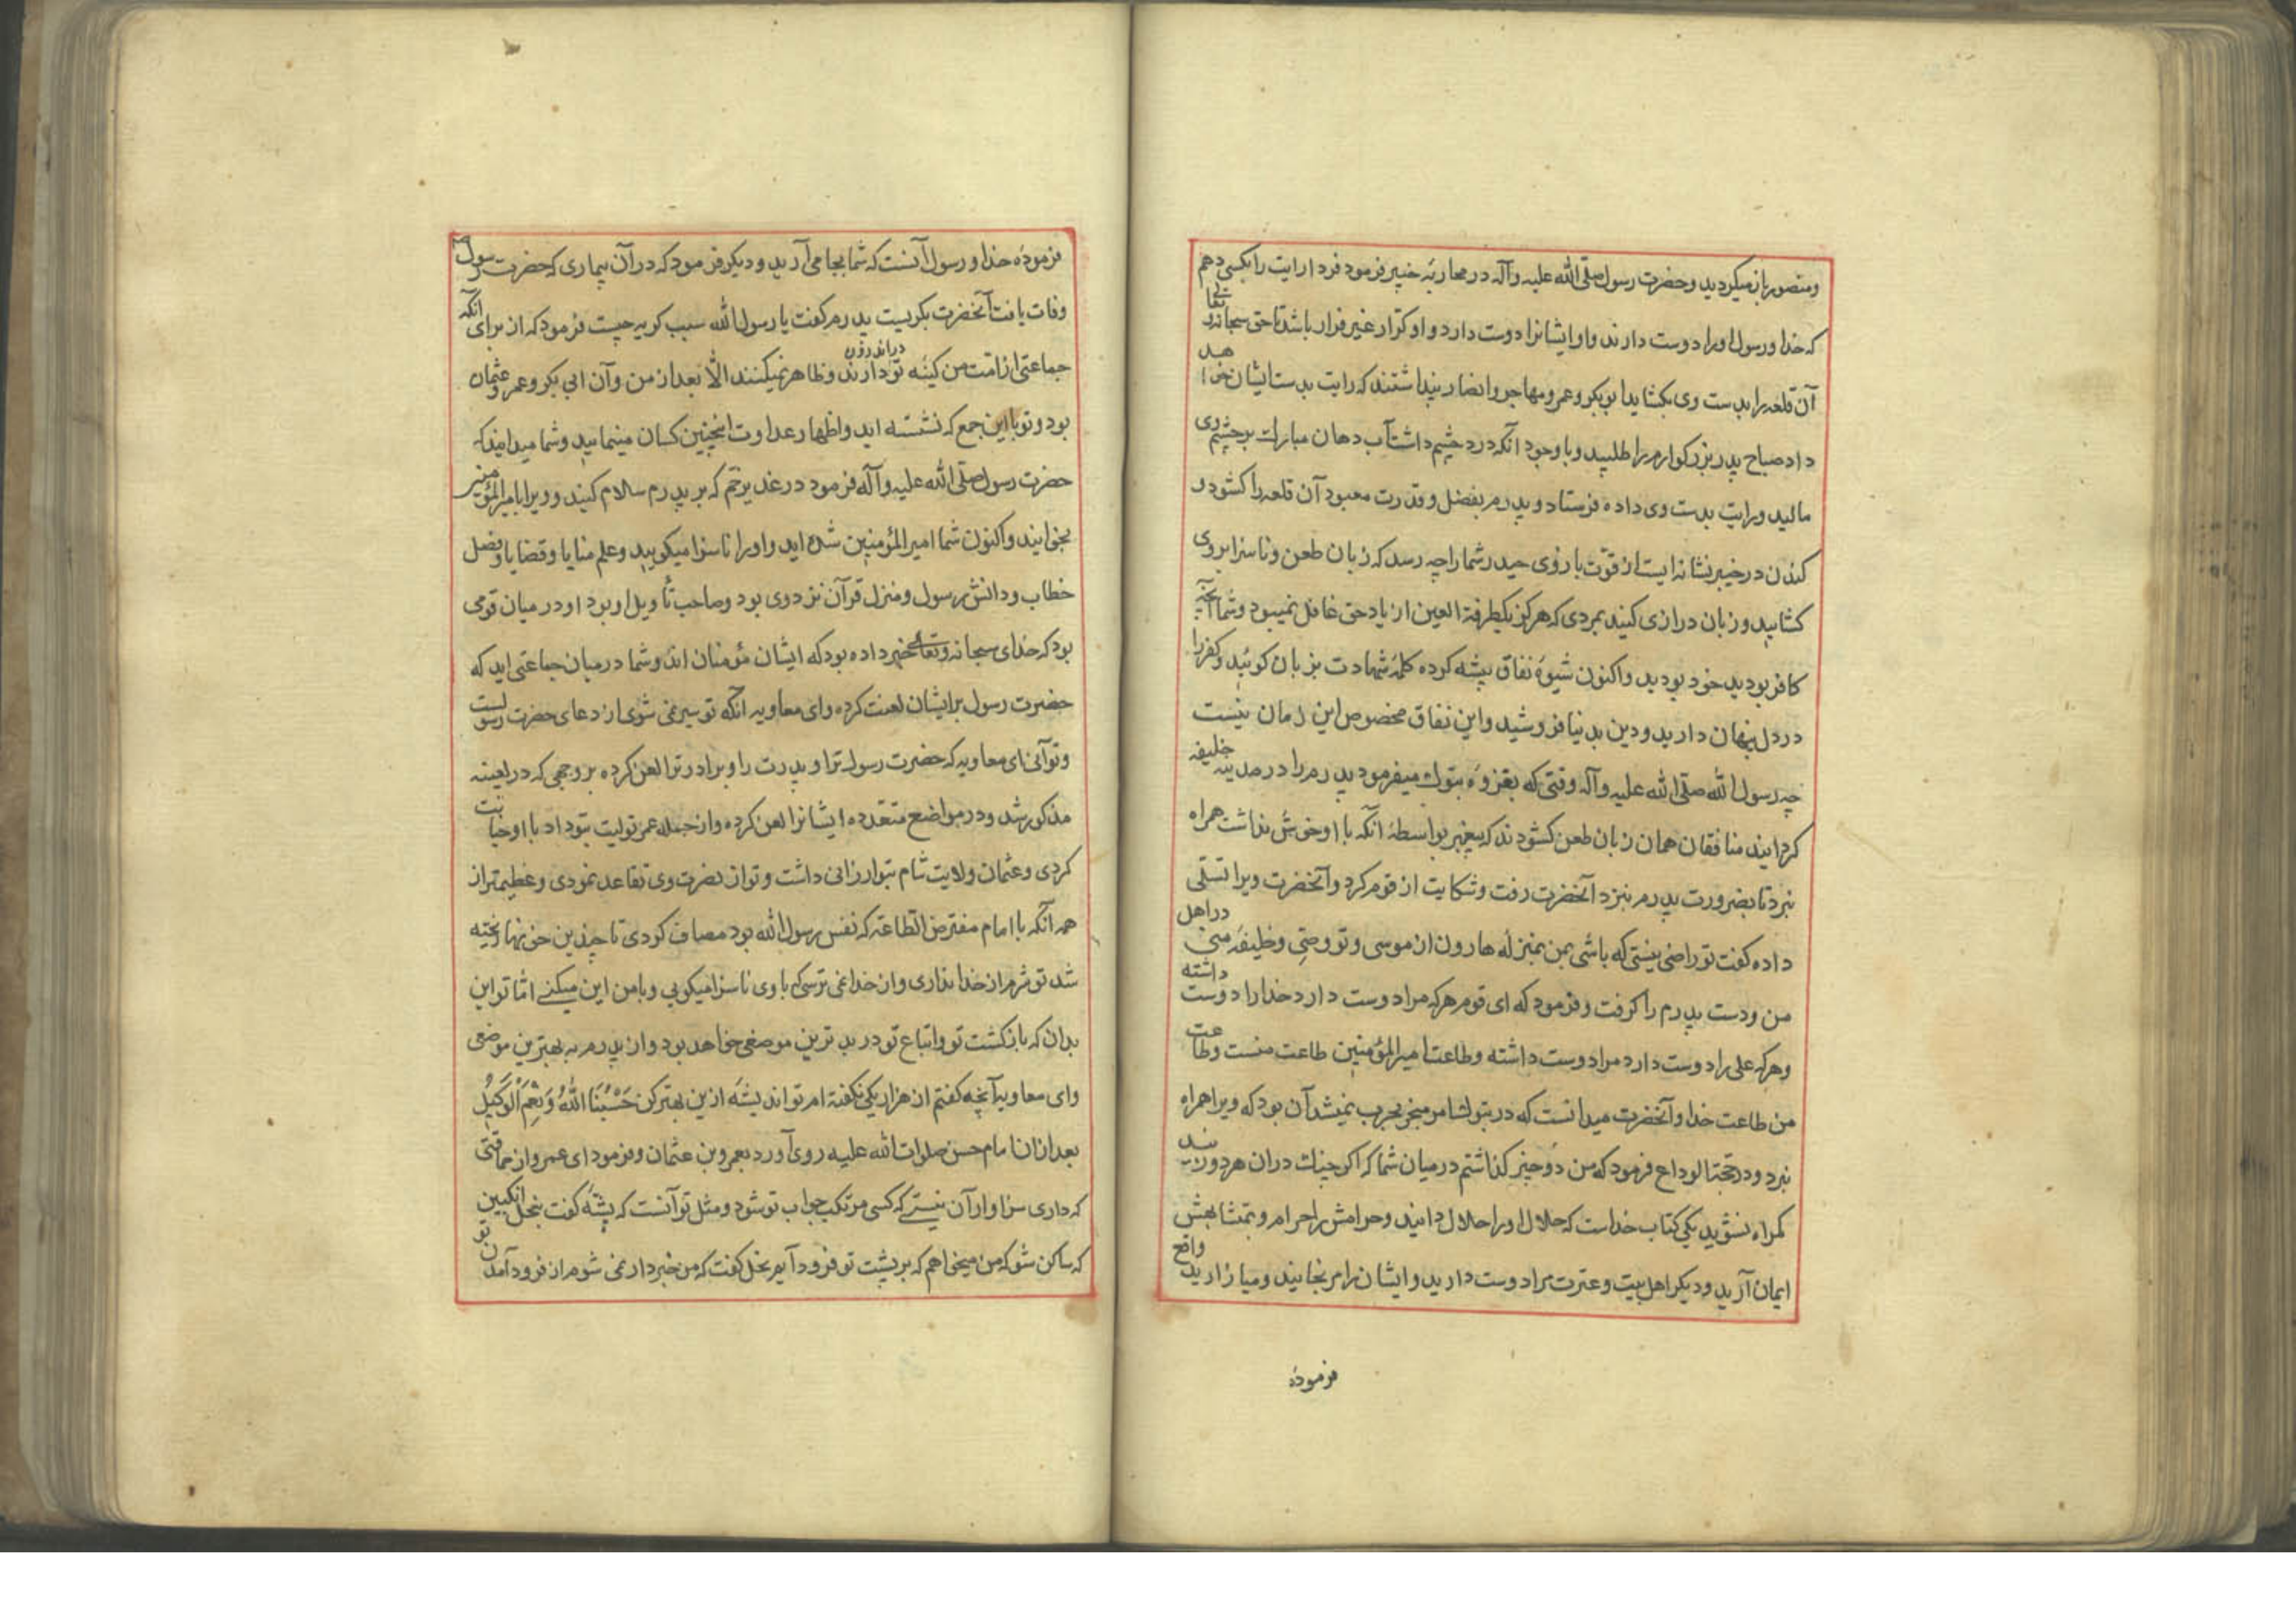 ومنصور باز میکردید وحضرت رسول صلّی الله علیه وآله در محاربهٔ خیبر فرمود فردا رایت را بکسی دهم
که خدا ورسول اورا دوست دارند واو ایشانرا دوست دارد واو کرّار غیر فرار باشد تا حق سبحانه وتعالی
آن قلعه را بدست وی بکشاید ابوبکر وعمر ومهاجر وانصار پنداشتند که رایت بدست ایشان خواهد
داد صباح پدر بزرکوارم را طلبید وبا وجود آنکه درد چشم داشت آب دهان مبارک بر چشم وی
مالید ورایت بدست وی داده فرستاد وپدرم بفضل وقدرت معبود آن قلعه را کشود و
کندن در خیبر نشانه ایست از قوّت بازوی حیدر شما را چه رسد که زبان طعن وناسزا بروی
کشایید وزبان درازی کنید بمردی که هرکز یکطرفة العین از یاد حق غافل نمیبود وشما آنچه
کافر بودید خود بودید واکنون شیوهٔ نفاق پیشه کرده کلمهٔ شهادت بزبان کوئید وکفر را
در دل پنهان دارید ودین بدنیا فروشید واین نفاق مخصوص این زمان نیست
چه رسول الله صلّی الله علیه وآله وقتی که بغزوهٔ تبوک میفرمود پدرم را در مدینه خلیفه
کردانید منافقان همان زبان طعن کشودند که پیغمبر بواسطهٔ آنکه با او خوش نداشت همراه
نبرد تا بضرورت پدرم بنزد آنحضرت رفت وشکایت از قوم کرد وآنحضرت ویرا تسلّی
داده کفت تو راضی نیستی که باشی بمن بمنزله هارون از موسی وتو وصّی وخلیفهٔ منی در اهل
من ودست پدرم را کرفت وفرمود که ای قوم هرکه مرا دوست دارد خدا را دوست داشته
وهرکه علی را دوست دارد مرا دوست داشته وطاعت امیرالمؤمنین طاعت منست وطاعت
من طاعت خدا وآنحضرت میدانست که در تبوک امر منجر بحرب نمیشد آن بود که ویرا همراه
نبرد ودر حجّة الوداع فرمود که من دو چیز کذاشتم در میان شما که اکر چنک دران هر دو زنید
کمراه نشوید یکی کتاب خداست که حلال اورا حلال دانید وحرامش را حرام وبمتشابهش
ایمان آرید ودیکر اهل بیت وعترت مرا دوست دارید وایشان را مرنجانید ومیازارید واقع
فرمودهٔ
فرمودهٔ خدا ورسول آنست که شما بجا می آرید ودیکر فرمود که در آن بیماری که حضرت رسول
وفات یافت آنحضرت بکریست پدرم کفت یا رسول الله سبب کریه چیست فرمود که از برای آنکه
جماعتی از امّت من کینهٔ تو در اندرون دارند وظاهر نمیکنند الّا بعد از من وآن ابی بکر وعمر وعثمان
بود وتو با این جمع که نشسته اید واظهار عداوت اینچنین کسان مینمایید وشما میدانید که
حضرت رسول صلّی الله علیه وآله فرمود در غدیر خم که بر پدرم سلام کنید وویرا بامیرالمؤمنین
بخوانید واکنون شما امیرالمؤمنین شده اید واورا ناسزا میکویید وعلم منایا وقضایا وفصل
خطاب ودانش رسول ومنزل قرآن نزد وی بود وصاحب تأویل او بود او در میان قومی
بود که خدای سبحانه وتعالی خبر داده بود که ایشان مؤمنان اند وشما در میان جماعتی اید که
حضرت رسول بر ایشان لعنت کرده وای معاویه آنکه تو سیر نمی شوی از دعای حضرت رسولست
وتو آنی ای معاویه که حضرت رسول ترا وپدرت را وبرادر ترا لعن کرده بر وجهی که در لعینه
مذکور شد ودر مواضع متعدده ایشانرا لعن کرده واز جمله عمر تولیت بتو داد با او خیانت
کردی وعثمان ولایت شام بتو ارزانی داشت وتو از نصرت وی تقاعد نمودی وعظیمتر از
همه آنکه با امام مفترض الطاعة که نفس رسول الله بود مصاف کردی تا چندین خونها ریخته
شد تو شرم از خدا نداری واز خدا نمی ترسی که با وی ناسزا میکویی وبا من این میکنی امّا تو این
بدان که بازکشت تو واتباع تو در بدترین موضعی خواهد بود واز پدرم به بهترین موضعی
وای معاویه آنچه کفتم از هزار یکی نکفته ام تو اندیشهٔ ازین بهتر کن حَسْبُنَا اللهُ وَنِعْمَ الْوَکیلُ
بعد ازان امام حسن صلوات الله علیه روی آورد بعمرو بن عثمان وفرمود ای عمرو از حماقتی
که داری سزاوار آن نیستی که کسی مرتکب جواب تو شود ومثل تو آنست که پشهٔ کفت بنحل انکبین
که ساکن شو که من میخواهم که بر پشت تو فرود آیم نحل کفت که من خبردار نمی شوم از فرود آمدن تو